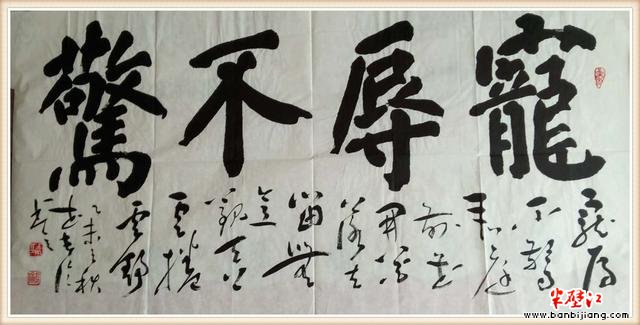 寵辱不驚
寵辱
不驚
看庭
前花
開花
落去
留無
意
觀天上
雲捲
雲舒
乙未之秋
半壁江
www.banbijiang.com